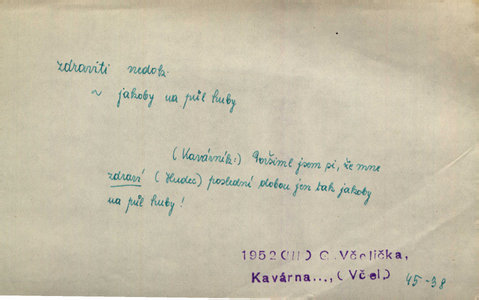 zdraviti nedok.
~ jakoby na půl huby
(Kavárník:) Povšiml jsem si, že mne
zdraví (Hudec) poslední dobou jen tak jakoby
na půl huby!
1952 (III) G. Včelička,
Kavárna..., (Včel.)
45-38